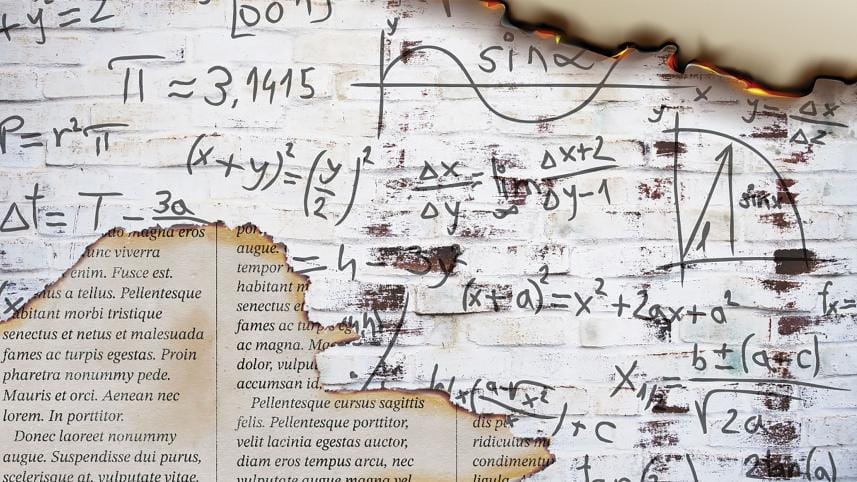 +y² = 2
π ≈ 3,1415
sin α
y
x
P = r²π
(x+y)² = (y/2)²
Δx/Δy = lim Δx+2/Δy-1
-∞
y = Δx/Δ2
y
sin x
Δt = T - 3a
= h - 3y²
(x+a)² = x² + 2ax + a²
fx =
X₁/₂ = b ± (a-c)/√2a
) + c
2tan(a)
magna eros
unc viverra
enim. Fusce est.
us a tellus. Pellentesque
abitant morbi tristique
senectus et netus et malesuada
fames ac turpis egestas. Proin
pharetra nonummy pede.
Mauris et orci. Aenean nec
lorem. In porttitor.
Donec laoreet nonummy
augue. Suspendisse dui purus,
scelerisque at, vulputate vitae,
por
augue.
tempor
habitant m
senectus et
fames ac turpis eg
ac magna. Ma
dolor, vulpu
accumsan id,
Pellentesque cursus sagittis
felis. Pellentesque porttitor,
velit lacinia egestas auctor,
diam eros tempus arcu, nec
vulputate augue magna vel
dis p
ridiculus m
condimentu
ligula